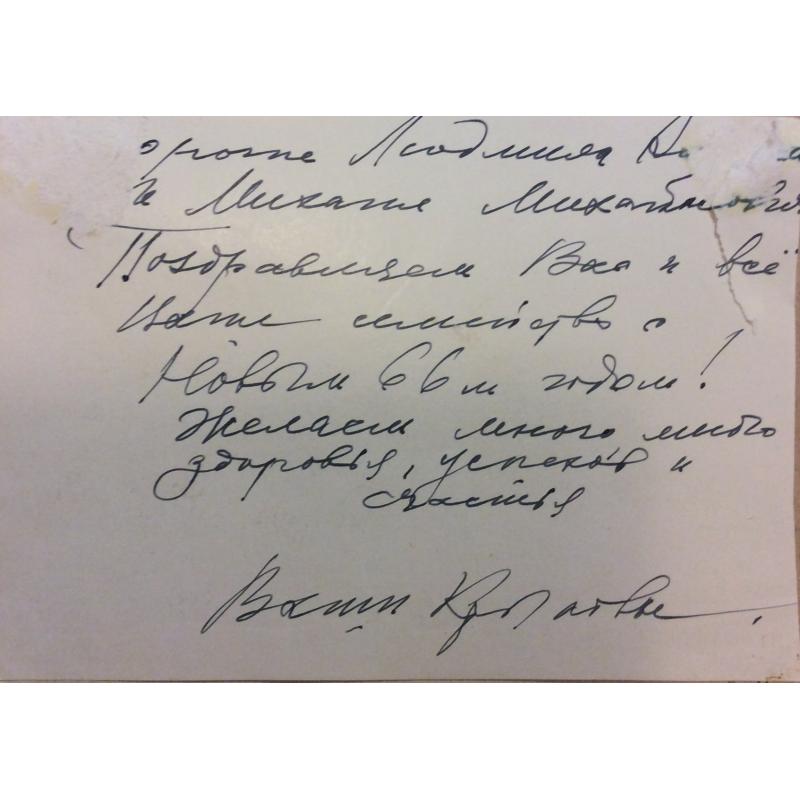 орогие Людмила
и Михаил Михайлович
Поздравляем Вас и всё
Ваше семейство с
Новым 66м годом!
Желаем много много
здоровья, успехов и
счастья
Ваши